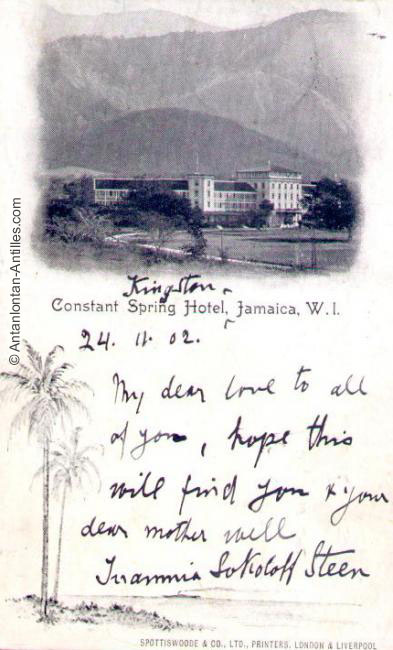 © Antanlontan-Antilles.com
Kingston
Constant Spring Hotel, Jamaica, W.I.
24. 11. 02.
My dear love to all
of you, hope this
will find you & your
dear mother well
Sokoloff Steen
SPOTTISWOODE & CO., LTD., PRINTERS, LONDON & LIVERPOOL